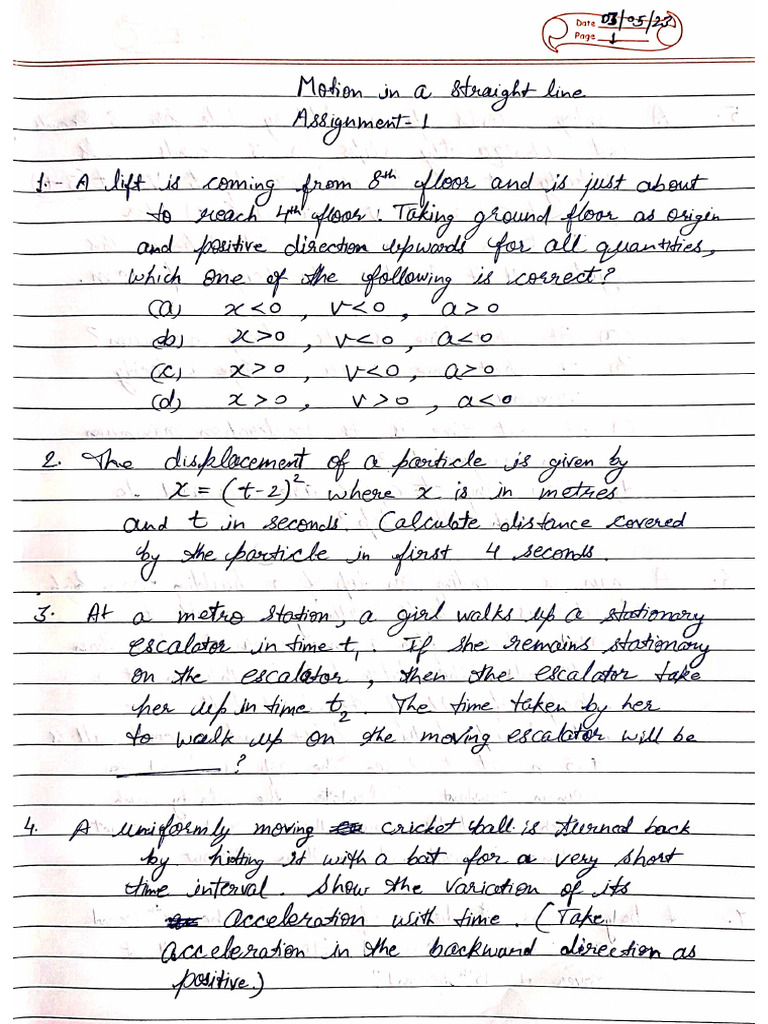 Date 03/05/23
Page 1
Motion in a straight line
Assignment-1
1.- A lift is coming from 8th floor and is just about
to reach 4th floor. Taking ground floor as origin
and positive direction upwards for all quantities,
which one of the following is correct?
(a) x<0, v<0, a>0
(b) x>0, v<0, a<0
(c) x>0, v<0, a>0
(d) x>0, v>0, a<0
2. The displacement of a particle is given by
x = (t-2)² where x is in metres
and t in seconds. Calculate distance covered
by the particle in first 4 seconds.
3. At a metro station, a girl walks up a stationary
escalator in time t₁. If she remains stationary
on the escalator, then the escalator take
her up in time t₂. The time taken by her
to walk up on the moving escalator will be
______?
4. A uniformly moving cricket ball is turned back
by hitting it with a bat for a very short
time interval. Show the variation of its
acceleration with time. (Take
acceleration in the backward direction as
positive.)